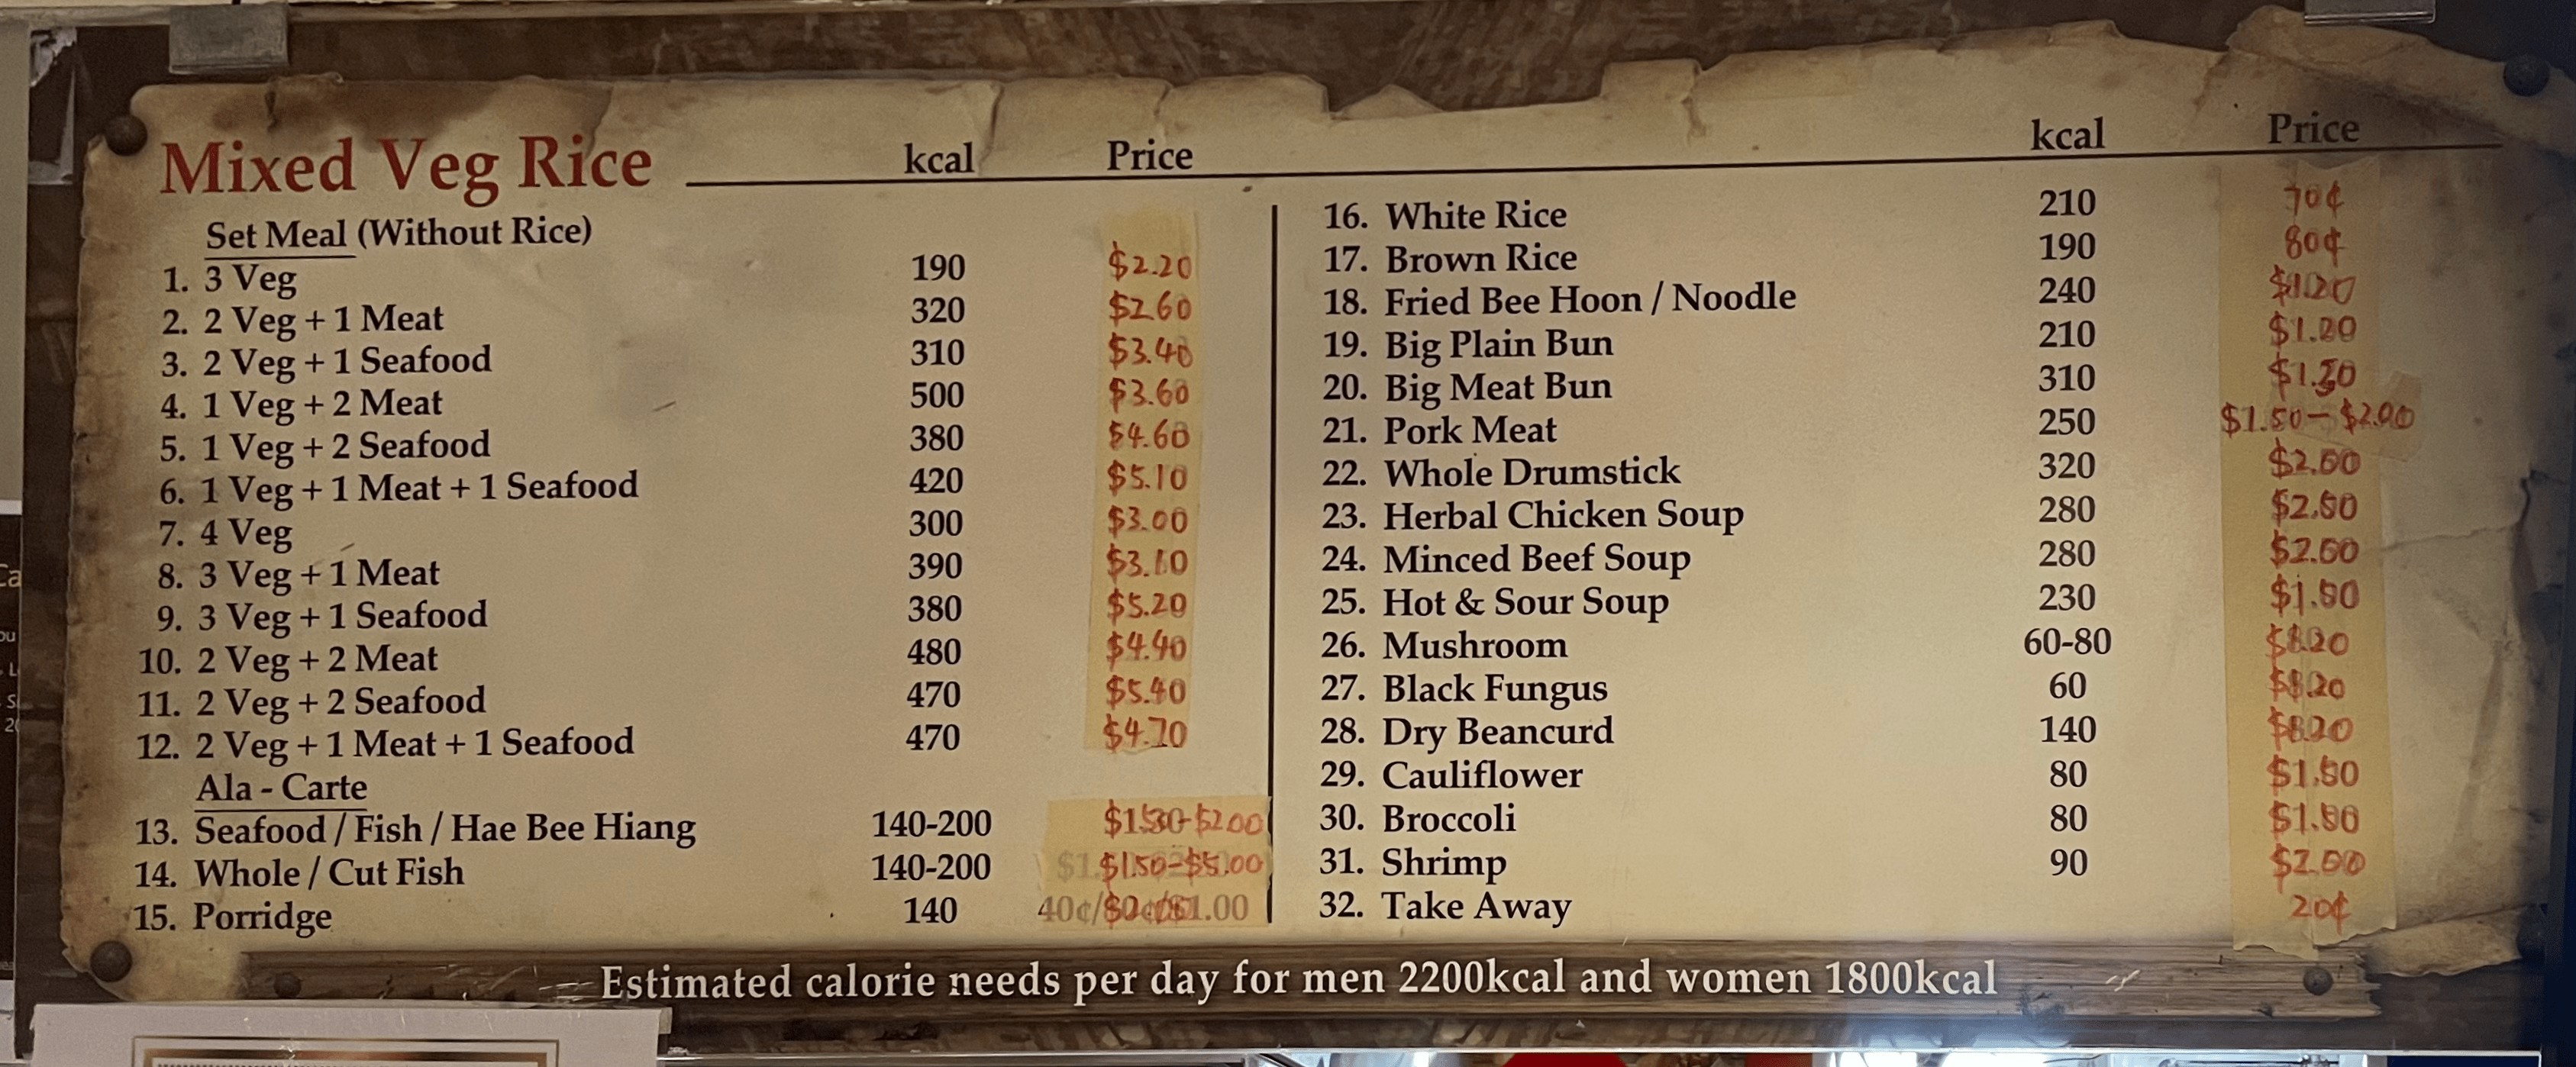 Mixed Veg Rice
kcal Price
Set Meal (Without Rice)
1. 3 Veg 190 $2.20
2. 2 Veg + 1 Meat 320 $2.60
3. 2 Veg + 1 Seafood 310 $3.40
4. 1 Veg + 2 Meat 500 $3.60
5. 1 Veg + 2 Seafood 380 $4.60
6. 1 Veg + 1 Meat + 1 Seafood 420 $5.10
7. 4 Veg 300 $3.00
8. 3 Veg + 1 Meat 390
9. 3 Veg + 1 Seafood 380 $5.20
10. 2 Veg + 2 Meat 480 $4.40
11. 2 Veg + 2 Seafood 470 $5.40
12. 2 Veg + 1 Meat + 1 Seafood 470 $4.70
Ala - Carte
13. Seafood / Fish / Hae Bee Hiang 140-200
14. Whole / Cut Fish 140-200 $1.50-$5.00
15. Porridge 140
kcal Price
16. White Rice 210 70¢
17. Brown Rice 190 80¢
18. Fried Bee Hoon / Noodle 240
19. Big Plain Bun 210
20. Big Meat Bun 310
21. Pork Meat 250
22. Whole Drumstick 320
23. Herbal Chicken Soup 280
24. Minced Beef Soup 280
25. Hot & Sour Soup 230
26. Mushroom 60-80
27. Black Fungus 60
28. Dry Beancurd 140
29. Cauliflower 80
30. Broccoli 80
31. Shrimp 90 $2.00
32. Take Away 20¢
Estimated calorie needs per day for men 2200kcal and women 1800kcal